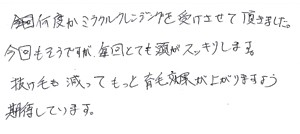 何度かミラクルクレンジングを受けさせて頂きました。
今回もそうですが、毎回とても頭がスッキリします。
抜け毛も減ってもっと育毛効果が上がりますよう
期待しています。